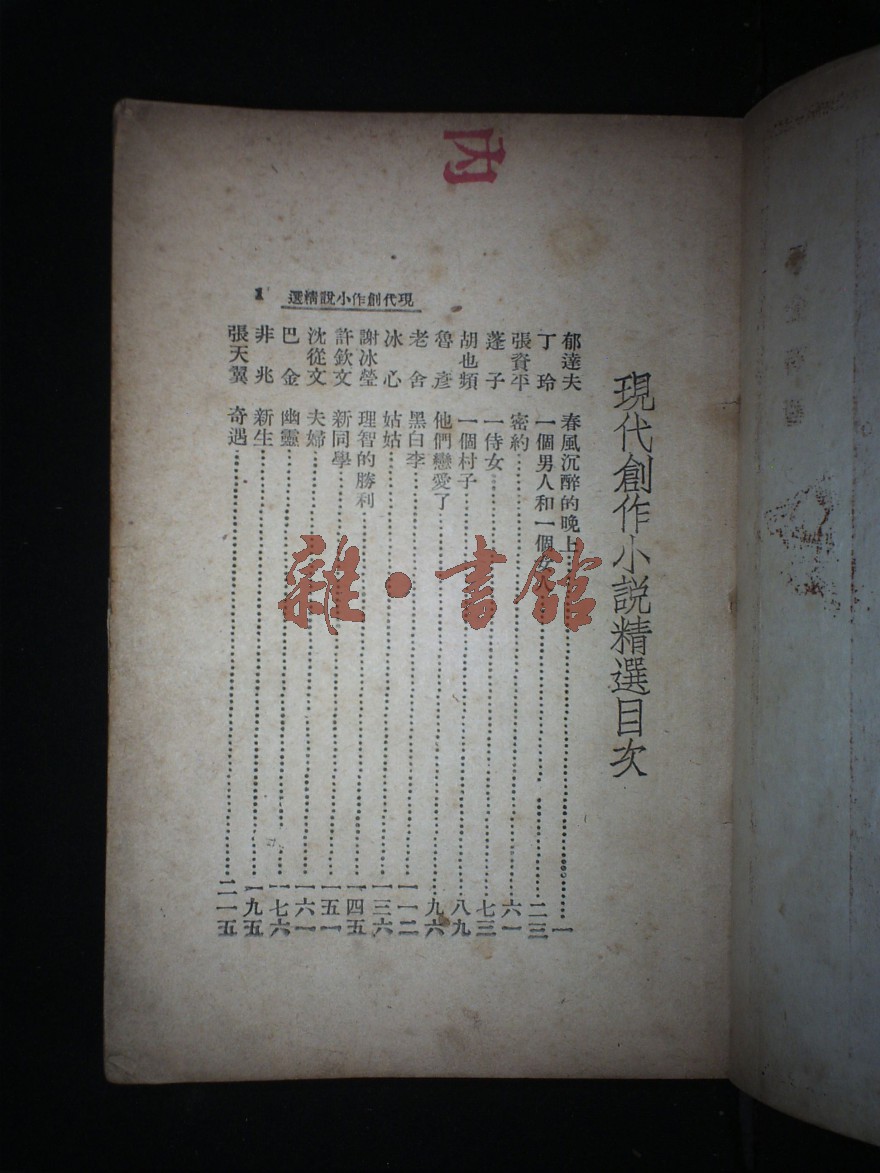 內
現代創作小說精選目次
郁達夫 春風沉醉的晚上……一
丁玲 一個男人和一個女人……二三
張資平 密約……六一
蓬子 一侍女……七三
胡也頻 一個村子……八九
魯彥 他們戀愛了……九六
老舍 黑白李……一一二
冰心 姑姑……一三六
謝冰瑩 理智的勝利……一四五
許欽文 新同學……一五一
沈從文 夫婦……一六一
巴金 幽靈……一七六
非兆 新生……一九五
張天翼 奇遇……二一五
現代創作小說精選 1
雜·書館